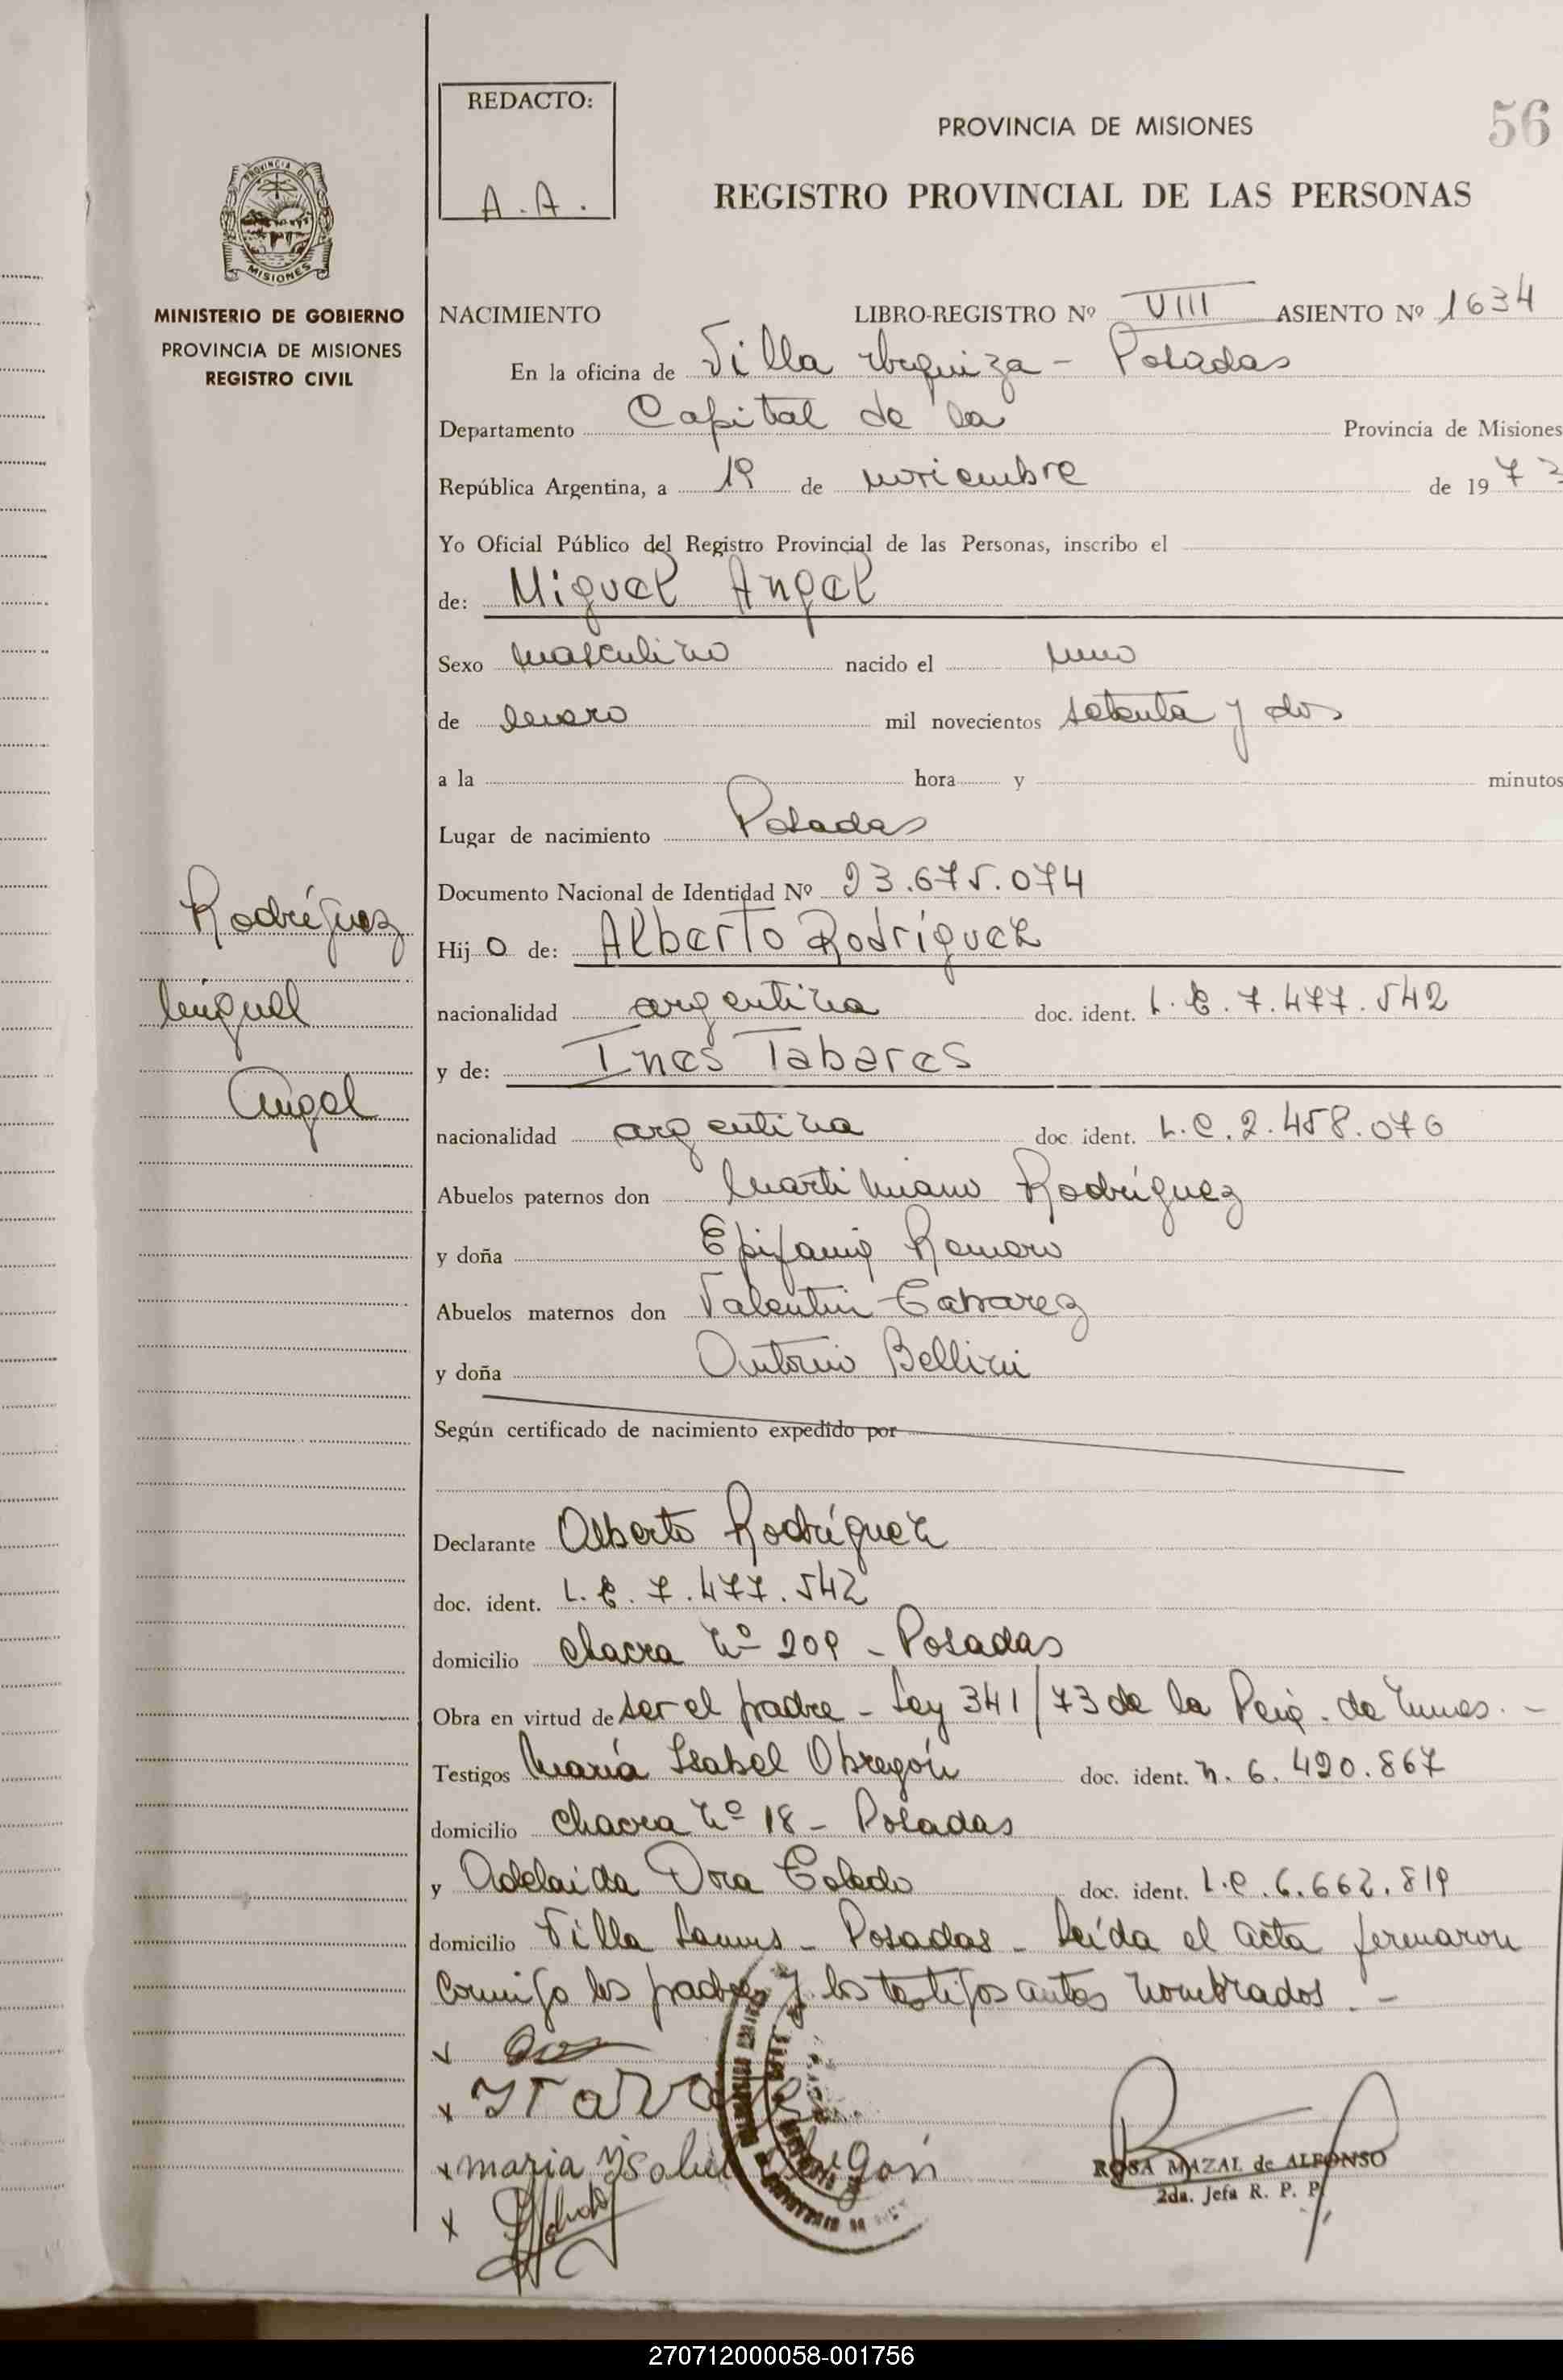 REDACTO:
A.A.
PROVINCIA DE MISIONES
56
REGISTRO PROVINCIAL DE LAS PERSONAS
PROVINCIA DE
MISIONES
MINISTERIO DE GOBIERNO
PROVINCIA DE MISIONES
REGISTRO CIVIL
NACIMIENTO LIBRO-REGISTRO Nº VIII ASIENTO Nº 1634
En la oficina de Villa Urquiza - Posadas
Departamento Capital de la Provincia de Misiones
República Argentina, a 19 de noviembre de 197
Yo Oficial Público del Registro Provincial de las Personas, inscribo el
de: Miguel Angel
Sexo masculino nacido el uno
de enero mil novecientos setenta y dos
a la hora y minutos
Lugar de nacimiento Posadas
Documento Nacional de Identidad Nº 93.675.074
Hijo de: Alberto Rodríguez
Rodríguez
Miguel
Angel
nacionalidad argentina doc. ident. L.E. 7.477.542
y de: Ines Tabares
nacionalidad argentina doc ident. L.C. 2.458.076
Abuelos paternos don Martimiano Rodríguez
y doña Epifania Romero
Abuelos maternos don Valentin Tabarez
y doña Antonia Bellini
Según certificado de nacimiento expedido por
Declarante Alberto Rodríguez
doc. ident. L.E. 7.477.542
domicilio chacra Nº 209 - Posadas
Obra en virtud de ser el padre - Ley 341/73 de la Pcia. de Mnes. -
Testigos María Isabel Obregón doc. ident. n. 6.490.867
domicilio chacra Nº 18 - Posadas
y Adelaida Dora Toledo doc. ident. L.C. 6.662.819
domicilio Villa Lanus - Posadas - Leída el acta firmaron
conmigo los padres y los testigos antes nombrados. -
maria Ysabel Obregón
ROSA MAZAL de ALFONSO
2da. Jefa R. P. P.
270712000058-001756